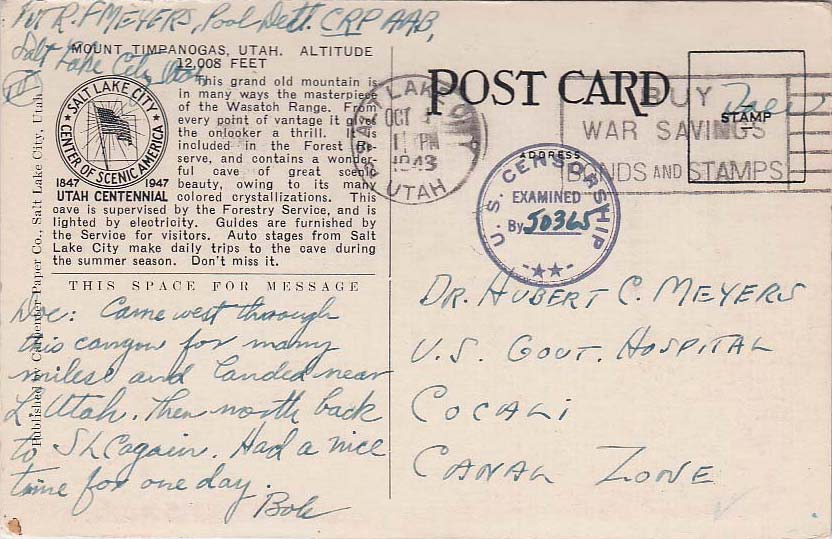 Pvt R. F MEYERS, Pool Dett. CRP AAB,
Salt Lake City Utah
MOUNT TIMPANOGAS, UTAH. ALTITUDE
12,008 FEET
This grand old mountain is
in many ways the masterpiece
of the Wasatch Range. From
every point of vantage it gives
the onlooker a thrill. It is
included in the Forest Re-
serve, and contains a wonder-
ful cave of great scenic
beauty, owing to its many
colored crystallizations. This
cave is supervised by the Forestry Service, and is
lighted by electricity. Guides are furnished by
the Service for visitors. Auto stages from Salt
Lake City make daily trips to the cave during
the summer season. Don't miss it.
SALT LAKE CITY
CENTER OF SCENIC AMERICA
1847 1947
UTAH CENTENNIAL
Published by Carpenter Paper Co., Salt Lake City, Utah
THIS SPACE FOR MESSAGE
Doc: Came west through
this canyon for many
miles and landed near
L. Utah. Then north back
to SLC again. Had a nice
time for one day.
Bob
POST CARD
SALT LAKE CITY
OCT
PM
1943
UTAH
BUY
WAR SAVINGS
BONDS AND STAMPS
STAMP
ADDRESS
U.S. CENSORSHIP
EXAMINED
By 50365
DR. HUBERT C. MEYERS
U.S. GOVT. HOSPITAL
COCALI
CANAL ZONE